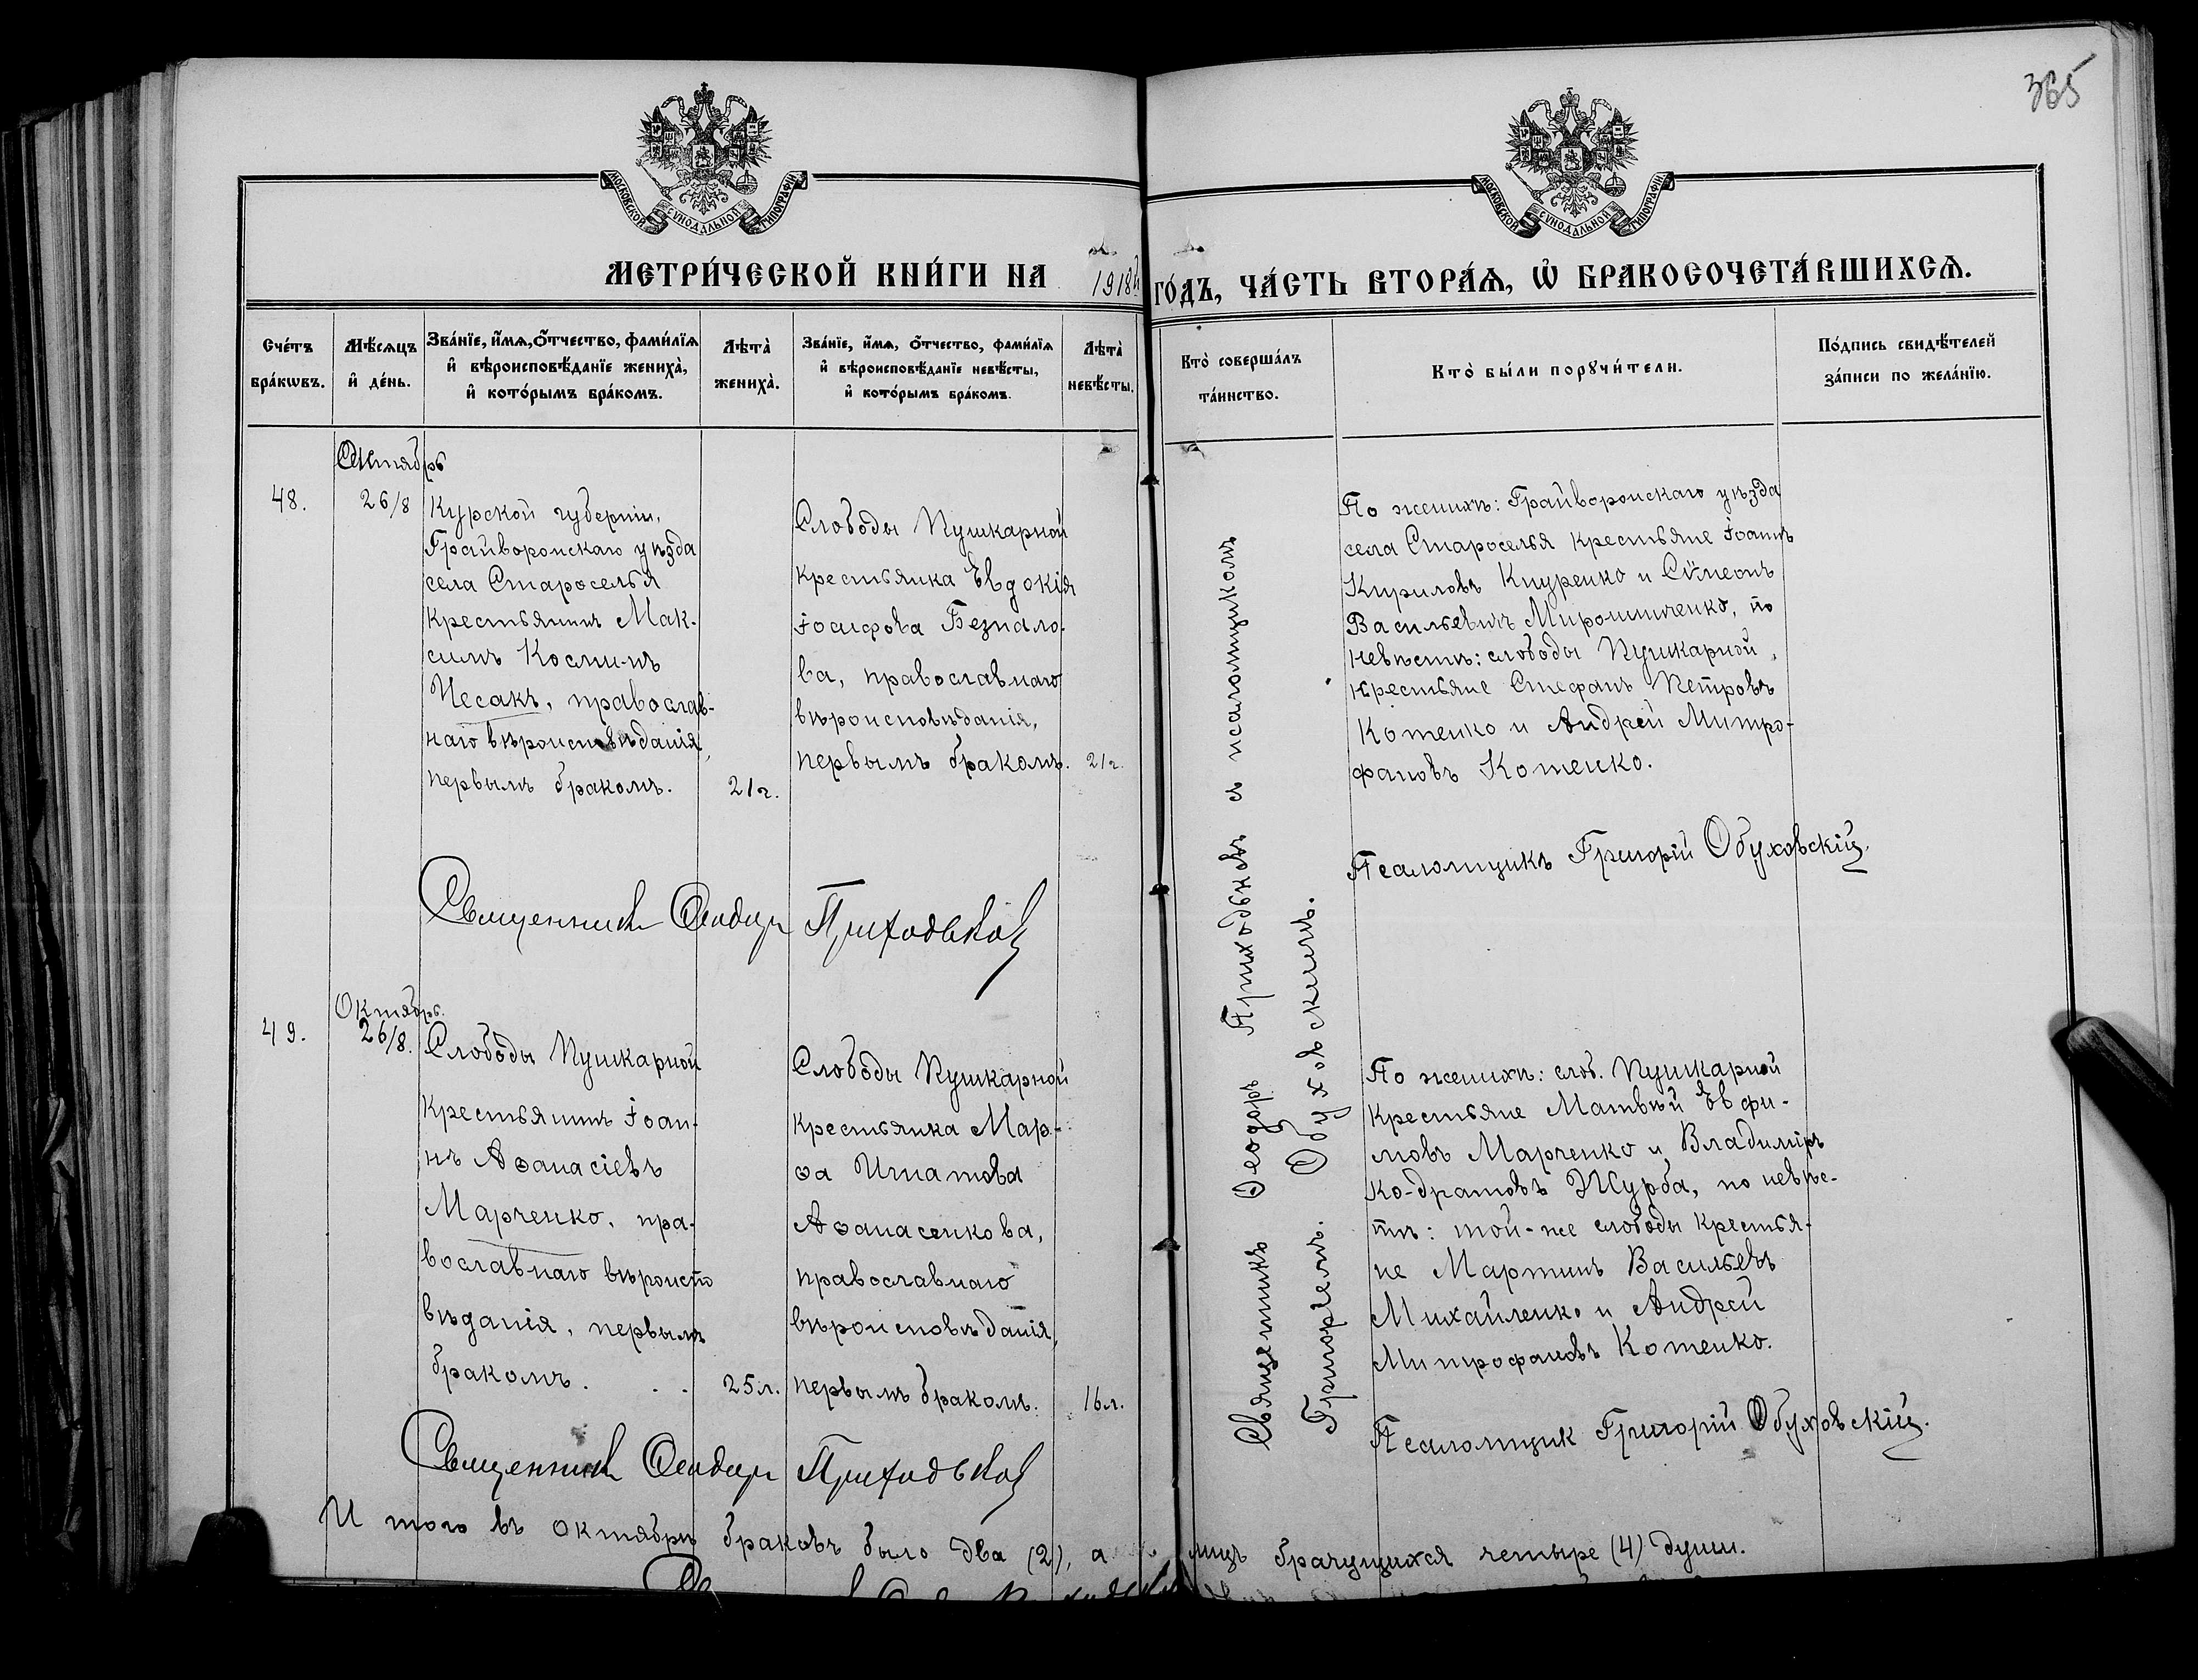 365
МОСКОВСКОЙ СѴНОДАЛЬНОЙ ТИПОГРАФІИ
МОСКОВСКОЙ СѴНОДАЛЬНОЙ ТИПОГРАФІИ
МЕТРИ́ЧЕСКОЙ КНИ́ГИ НА 1918й ГО́ДЪ, ЧА́СТЬ ВТОРА́Ѧ, Ѽ БРАКОСОЧЕТА́ВШИХСѦ.
Сче́тъ
бра́кѡвъ.
Мѣ́сѧцъ
и҆ де́нь.
Зва́нїе, и҆́мѧ, ѻ҆́тчество, фами́лїѧ
и҆ вѣроисповѣ́данїе жениха̀,
и҆ кото́рымъ бра́комъ.
Лѣта̀
жениха̀.
Зва́нїе, и҆́мѧ, ѻ҆́тчество, фами́лїѧ
и҆ вѣроисповѣ́данїе невѣ́сты,
и҆ кото́рымъ бра́комъ.
Лѣта̀
невѣ́сты.
Кто̀ соверша́лъ
та́инство.
Кто̀ бы́ли порꙋчи́тели.
По́дпись свидѣ́телей
за́писи по жела́нїю.
48.
Октябрь
26/8
Курской губерніи,
Грайворонскаго уѣзда
села Староселья
крестьянинъ Мак-
симъ Косминъ
Чесакъ, православ-
наго вѣроисповѣданія,
первымъ бракомъ.
21г.
Слободы Пушкарной
крестьянка Евдокія
Іосифова Безпало-
ва, православнаго
вѣроисповѣданія,
первымъ бракомъ.
21г.
Священникъ Ѳеодоръ Приходьковъ
Священникъ Ѳеодоръ Приходьковъ съ псаломщикомъ
Григоріемъ Обуховскимъ.
По женихѣ: Грайворонскаго уѣзда
села Староселья крестьяне Іоаннъ
Кириловъ Кнуренко и Сѵмеонъ
Васильевичъ Мирошниченко, по
невѣстѣ: слободы Пушкарной
крестьяне Стефанъ Петровъ
Котенко и Андрей Митро-
фановъ Котенко.
Псаломщикъ Григорій Обуховскій.
49.
Октябрь.
26/8.
Слободы Пушкарной
крестьянинъ Іоан-
нъ Аѳанасіевъ
Марченко, пра-
вославнаго вѣроиспо
вѣданія, первымъ
бракомъ. . .
25л.
Слободы Пушкарной
крестьянка Мар-
ѳа Игнатова
Аѳанасенкова,
православнаго
вѣроисповѣданія,
первымъ бракомъ.
16л.
Священникъ Ѳеодоръ Приходьковъ
По женихѣ: слоб. Пушкарной
крестьяне Матвѣй Евфи-
мовъ Марченко и Владиміръ
Ко-дратовъ Журба, по невѣс-
тѣ: той-же слободы крестья-
не Мартинъ Васильевъ
Михайленко и Андрей
Митрофановъ Котенко.
Псаломщик Григорій Обуховскій.
И того въ октябрѣ браковъ было два (2), а лицъ брачущихся четыре (4) души.